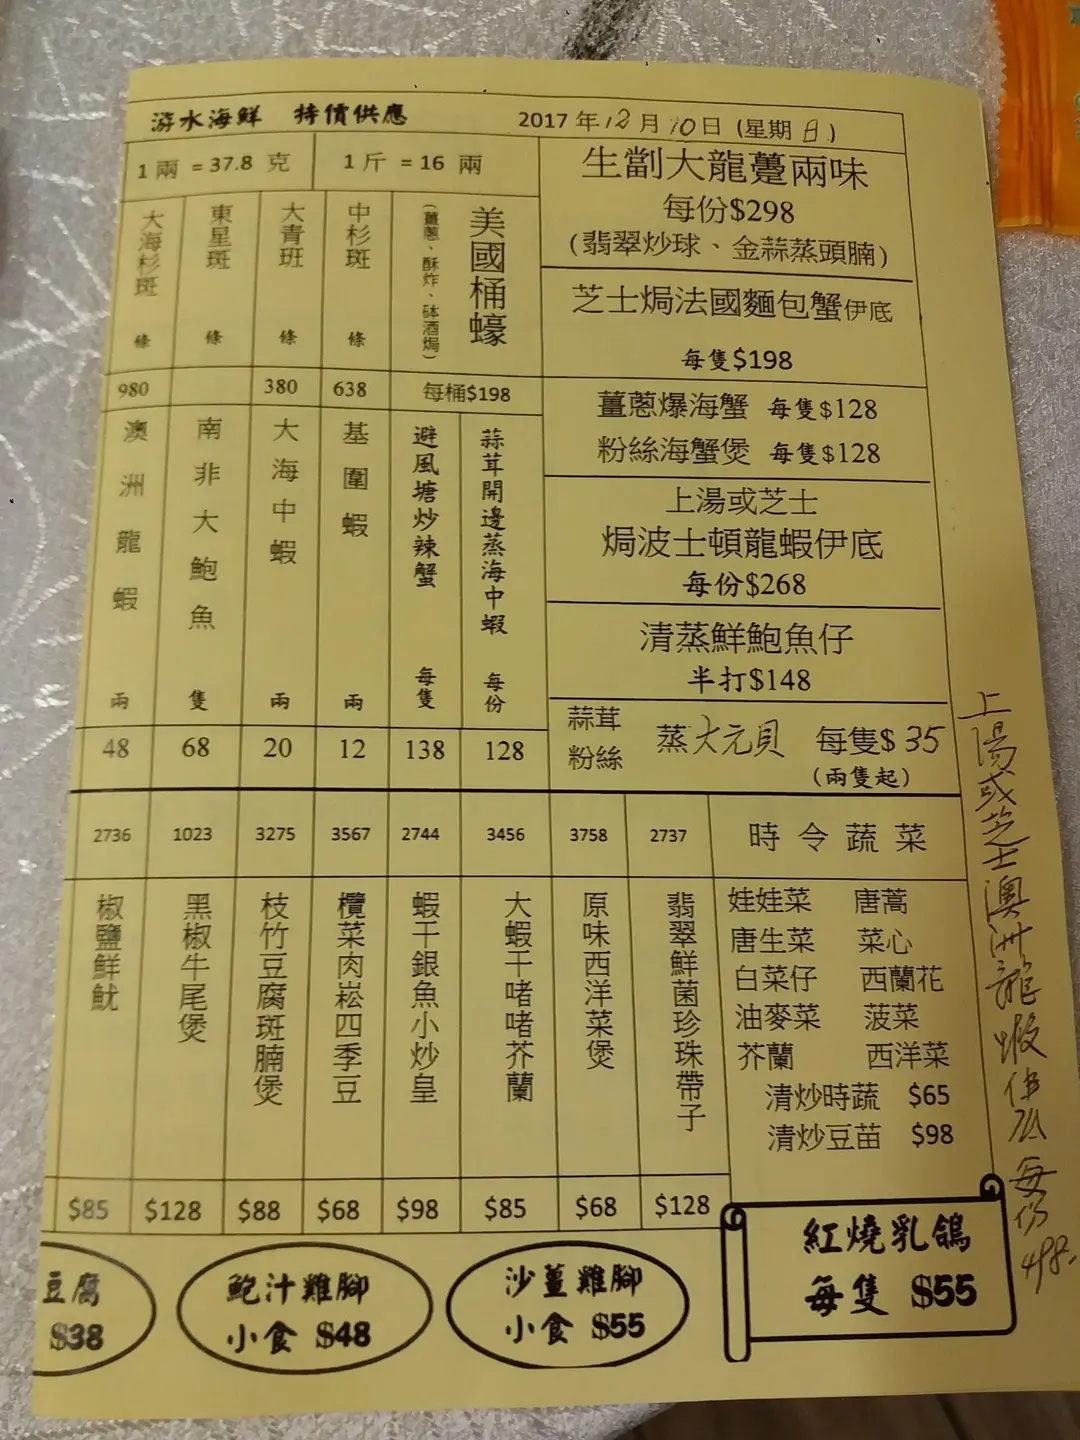 游水海鮮 特價供應
2017 年12月10日 (星期日)
1 兩 = 37.8 克
1 斤 = 16 兩
生劏大龍躉兩味
每份$298
(翡翠炒球、金蒜蒸頭腩)
芝士焗法國麵包蟹伊底
每隻$198
薑蔥爆海蟹 每隻$128
粉絲海蟹煲 每隻$128
上湯或芝士
焗波士頓龍蝦伊底
每份$268
清蒸鮮鮑魚仔
半打$148
蒜茸
粉絲
蒸大元貝 每隻$35
(兩隻起)
美國桶蠔
(薑蔥、酥炸、砵酒焗)
每桶$198
中杉斑
條
638
大青班
條
380
東星斑
條
大海杉斑
條
980
蒜茸開邊蒸海中蝦
每份
128
避風塘炒辣蟹
每隻
138
基圍蝦
兩
12
大海中蝦
兩
20
南非大鮑魚
隻
68
澳洲龍蝦
兩
48
時令蔬菜
娃娃菜 唐蒿
唐生菜 菜心
白菜仔 西蘭花
油麥菜 菠菜
芥蘭 西洋菜
清炒時蔬 $65
清炒豆苗 $98
2737
翡翠鮮菌珍珠帶子
$128
3758
原味西洋菜煲
$68
3456
大蝦干啫啫芥蘭
$85
2744
蝦干銀魚小炒皇
$98
3567
欖菜肉崧四季豆
$68
3275
枝竹豆腐斑腩煲
$88
1023
黑椒牛尾煲
$128
2736
椒鹽鮮魷
$85
上湯或芝士澳洲龍蝦伊底每份498.
紅燒乳鴿
每隻 $55
沙薑雞腳
小食 $55
鮑汁雞腳
小食 $48
豆腐
$38